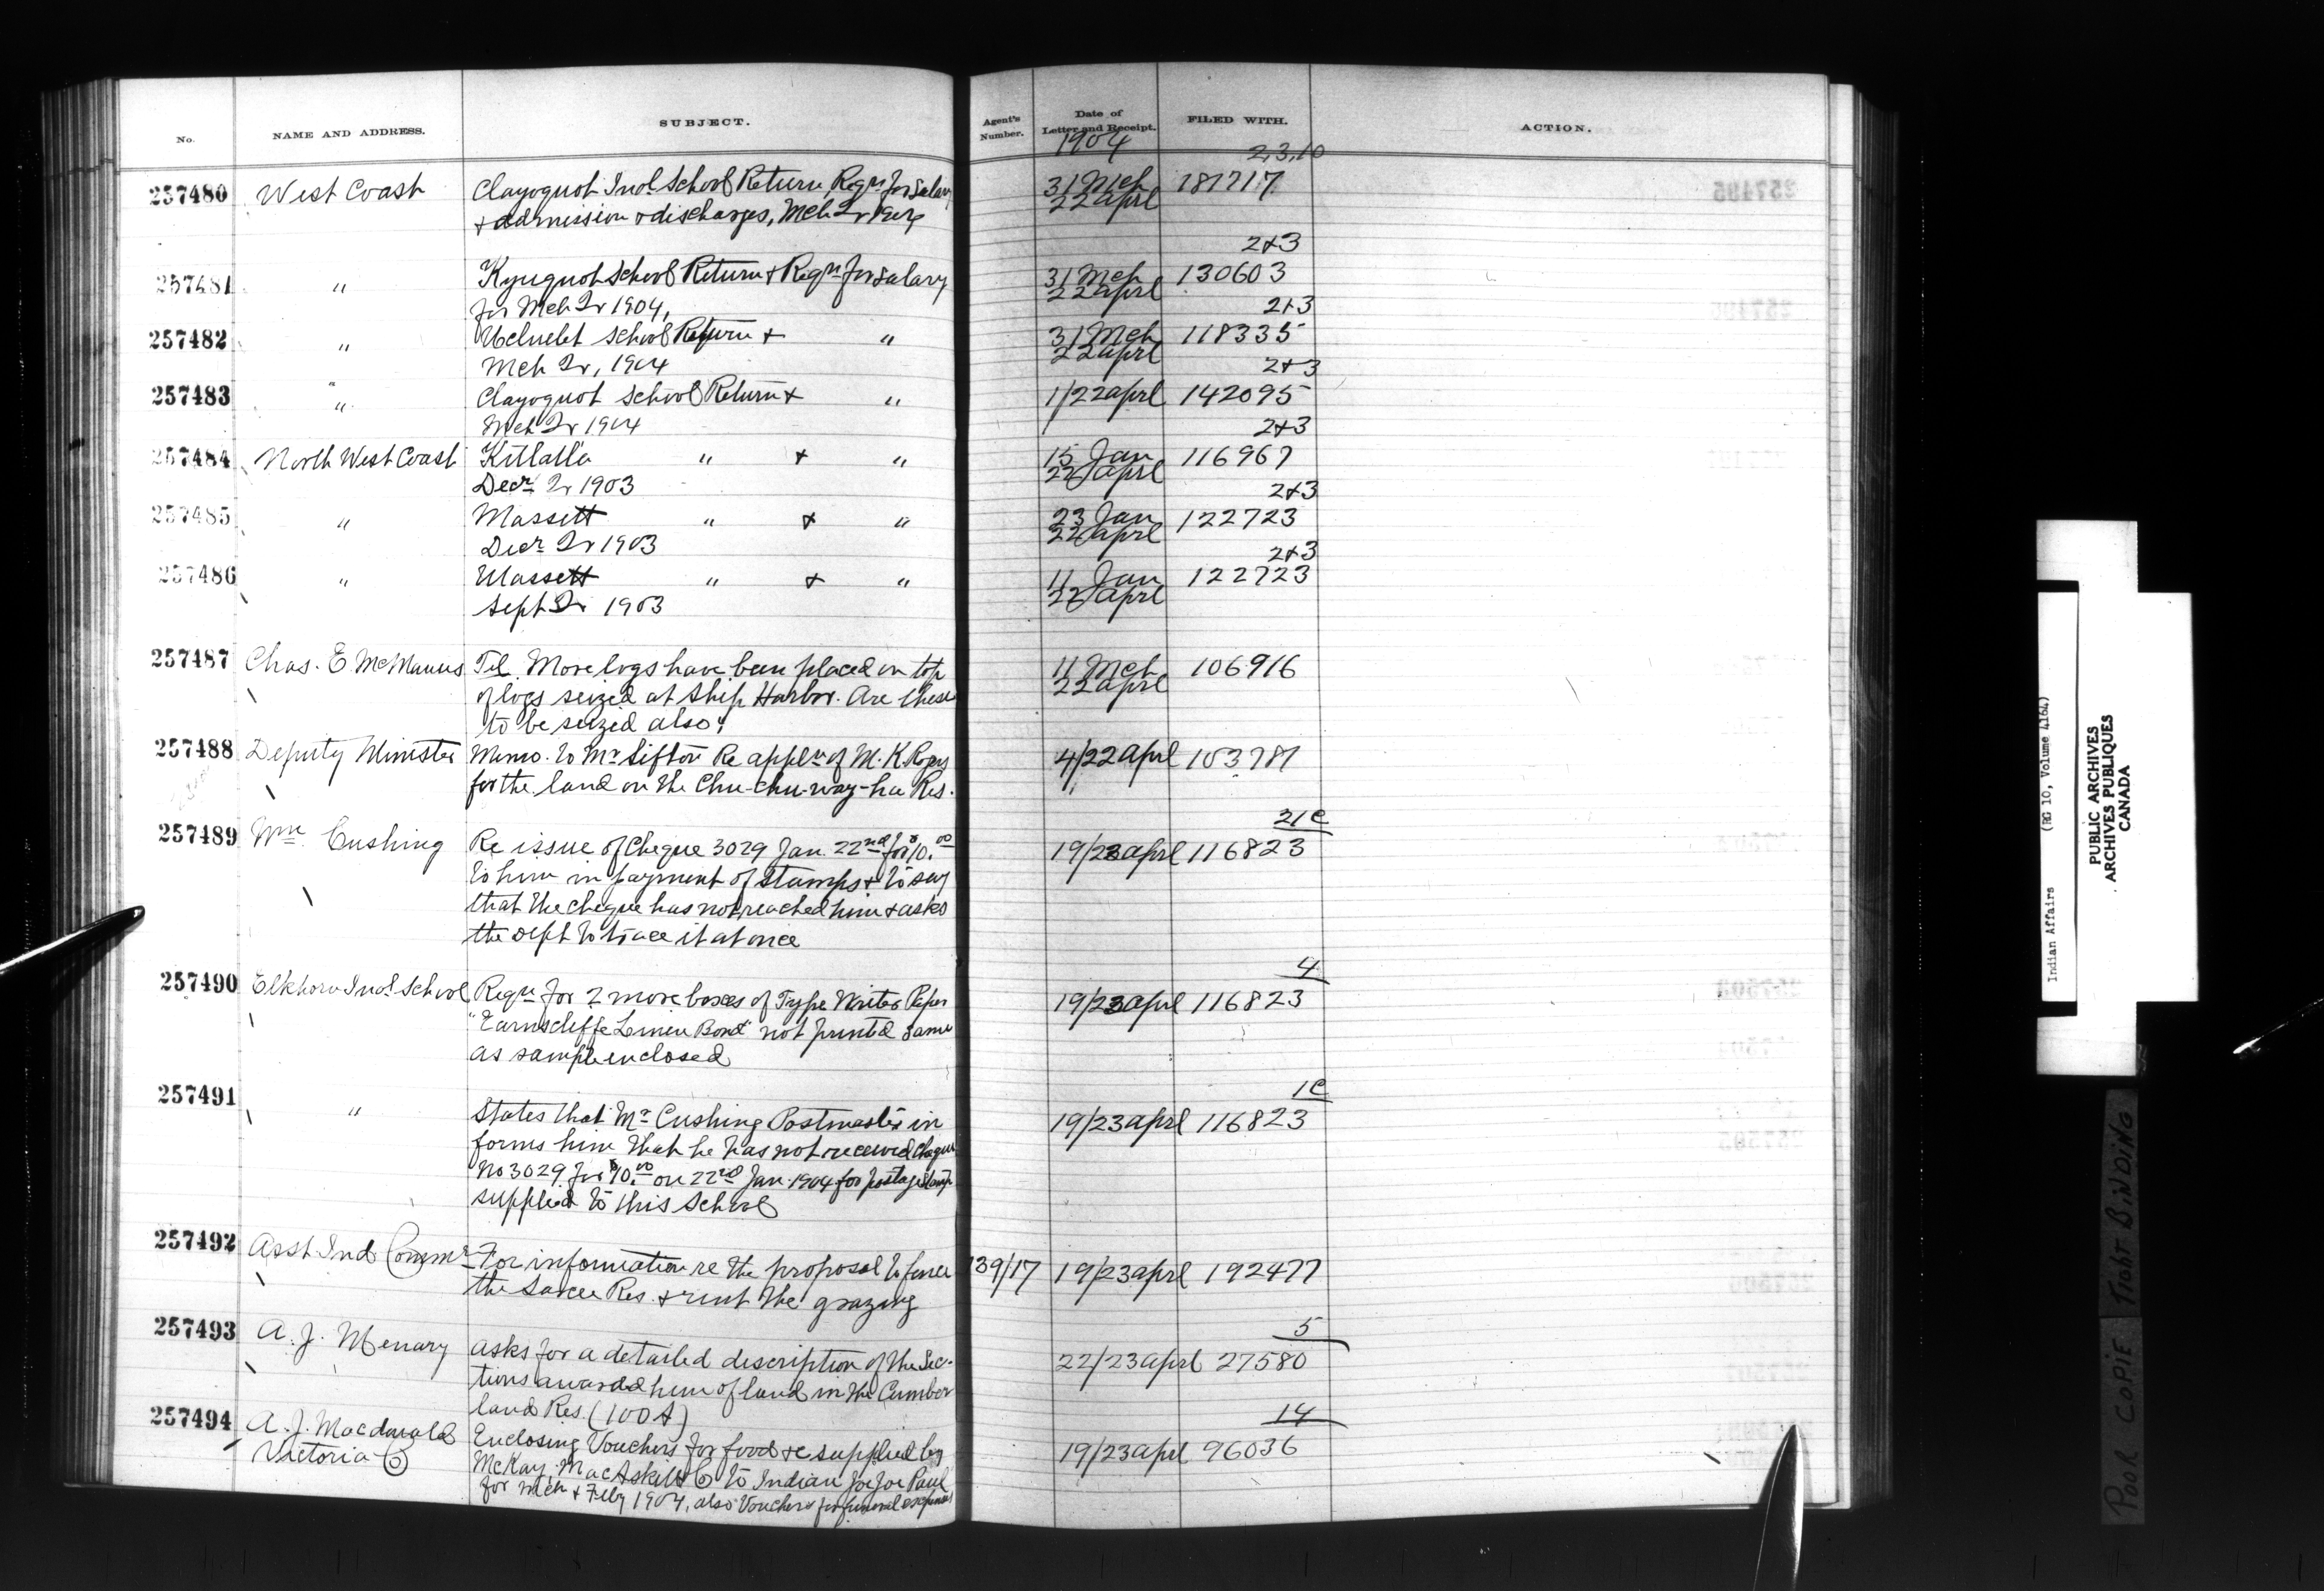 No. NAME AND ADDRESS. SUBJECT. Agent's Number. Date of Letter and Receipt. FILED WITH. ACTION.
1904
2,3,10
257480 West Coast Clayoquot Indl School Return, Reqn for Salary 31 Mch 181717
& admission & discharges, Mch Qr 1904 22 aprl
2&3
257481 " Kyuquot School Return & Reqn for salary 31 Mch 130603
for Mch Qr 1904, 22 aprl
2&3
257482 " Ucluelet School Return & " 31 Mch 118335
Mch Qr, 1904 22 aprl
2&3
257483 " Clayoquot School Return & " 1/22 aprl 142095
Mch Qr 1904
2&3
257484 North West Coast Kitlatla " & " 15 Jan 116967
Decr Qr 1903 22 aprl
2&3
257485 " Massett " & " 23 Jan 122723
Decr Qr 1903 22 aprl
2&3
257486 " Massett " & " 11 Jan 122723
Sept Qr 1903 22 aprl
257487 Chas. E. McManus Tel. More logs have been placed on top 11 Mch 106916
of logs seized at Ship Harbor. Are these 22 aprl
to be seized also?
257488 Deputy Minister Memo. to Mr Sifton Re appln of M. K. Rogers 4/22 aprl 103787
for the land on the Chu-chu-way-ha Res.
21c
257489 Wm Cushing Re issue of Cheque 3029 Jan. 22nd for $10.00 19/23 aprl 116823
to him in payment of stamps & to say
that the cheque has not reached him & asks
the Dept to trace it at once
4
257490 Elkhorn Indl School Reqn for 2 more boxes of Type Writer Paper 19/23 aprl 116823
"Earnscliffe Linen Bond" not printed same
as sample enclosed
1c
257491 " States that Mr Cushing Postmaster in 19/23 aprl 116823
forms him that he has not received Cheque
No 3029 for $10.00 on 22nd Jan. 1904 for postage stamps
supplied to this School
257492 Asst Ind Commr For information re the proposal to fence 139/17 19/23 aprl 192477
the Sarcee Res. & rent the grazing
5
257493 A. J. Menary asks for a detailed description of the Sec- 22/23 aprl 27580
tions awarded him of land in the Cumber
land Res. (100A)
14
257494 A. J. Macdonald Enclosing Vouchers for food &c supplied by 19/23 aprl 96036
Victoria Co McKay, MacAskill Co to Indian Joe Paul
for Mch & Feby 1904, also Vouchers for funeral expenses
Indian Affairs (RG 10, Volume 4164)
PUBLIC ARCHIVES
ARCHIVES PUBLIQUES
CANADA
POOR COPIE TIGHT BINDING